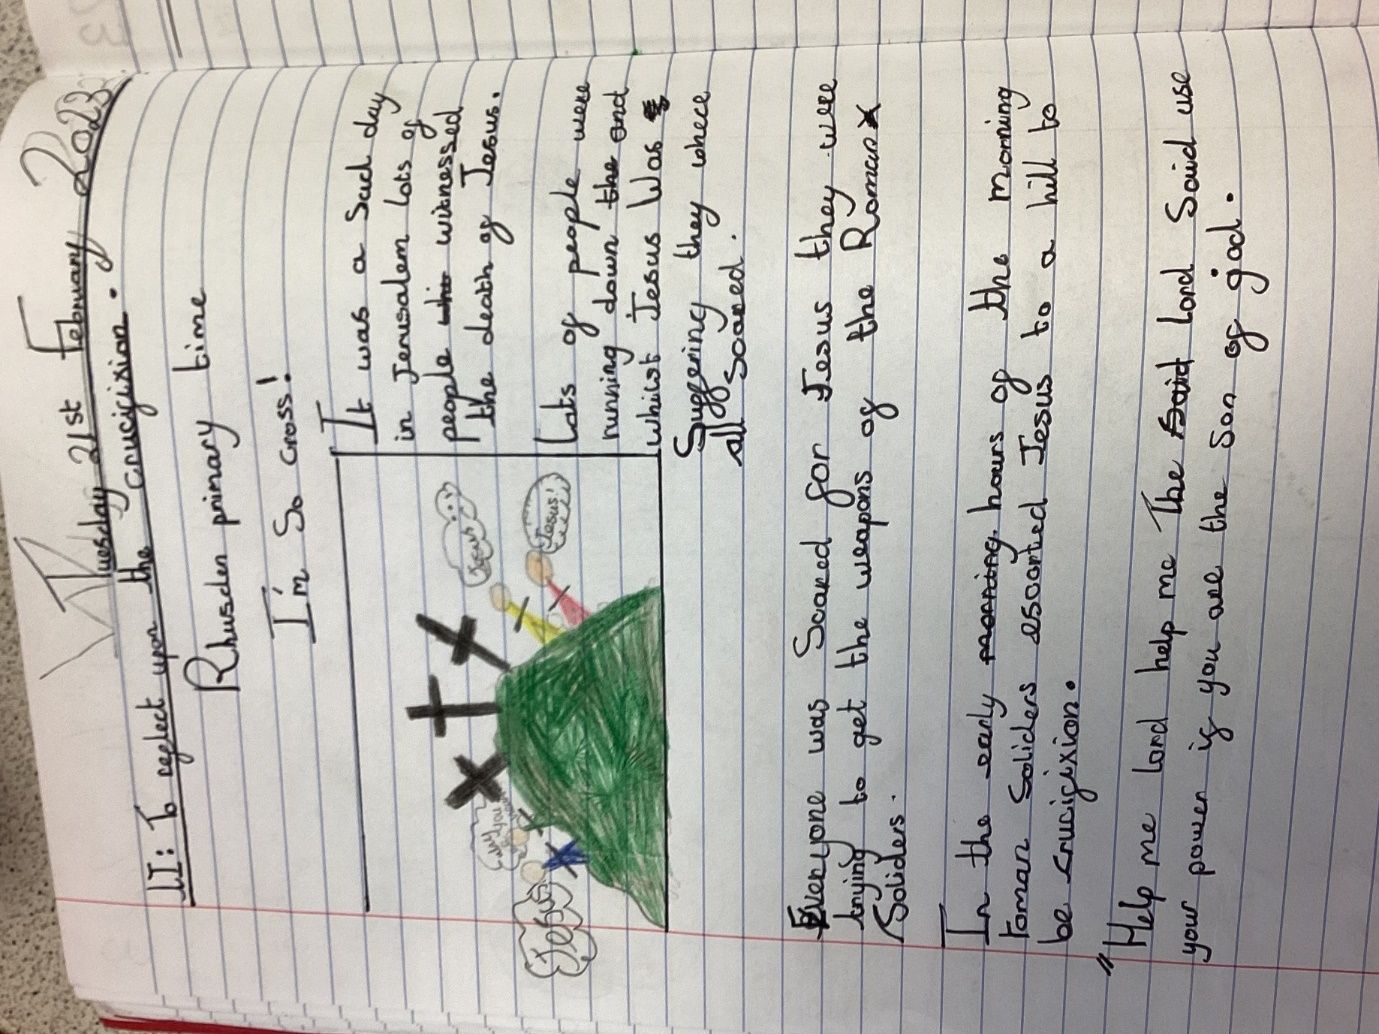 Tuesday 21st February 2023
LI: To reflect upon the crucifixion.
Rhusden primary time
I'm So cross!
It was a Sad day
in Jerusalem lots of
people witnessed
the death of Jesus.
Lots of people were
running down the and
whilst Jesus Was
Suffering they where
all Scared.
Jesus...
Jesus!
Why you
Jesus
Everyone was Scared for Jesus they were
trying to get the weapons of the Roman
Soliders.
In the early morning hours of the morning
roman Soliders escorted Jesus to a hill to
be crucifixion.
"Help me lord help me The Said lord Said use
your power if you are the Son of god.